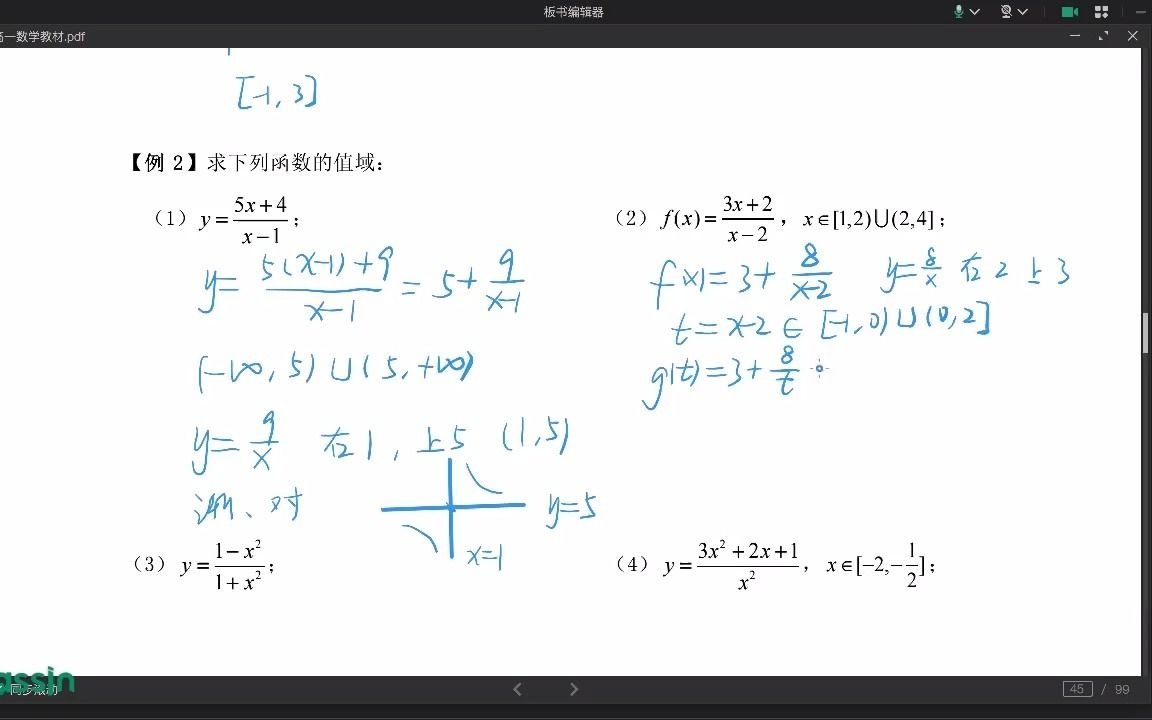 板书编辑器
高一数学教材.pdf
[-1, 3]
【例 2】求下列函数的值域：
（1）y = (5x+4)/(x−1)；
y = (5(x-1)+9)/(x-1) = 5 + 9/(x-1)
(-∞, 5) ∪ (5, +∞)
y = 9/x 右1, 上5 (1,5)
渐、对
y=5
x=1
（2）f(x) = (3x+2)/(x−2)，x∈[1,2)∪(2,4]；
f(x) = 3 + 8/(x-2) y = 8/x 右2上3
t = x-2 ∈ [-1, 0) ∪ (0, 2]
g(t) = 3 + 8/t
（3）y = (1−x²)/(1+x²)；
（4）y = (3x²+2x+1)/x²，x∈[−2,−1/2]；
同步滚动
45 / 99